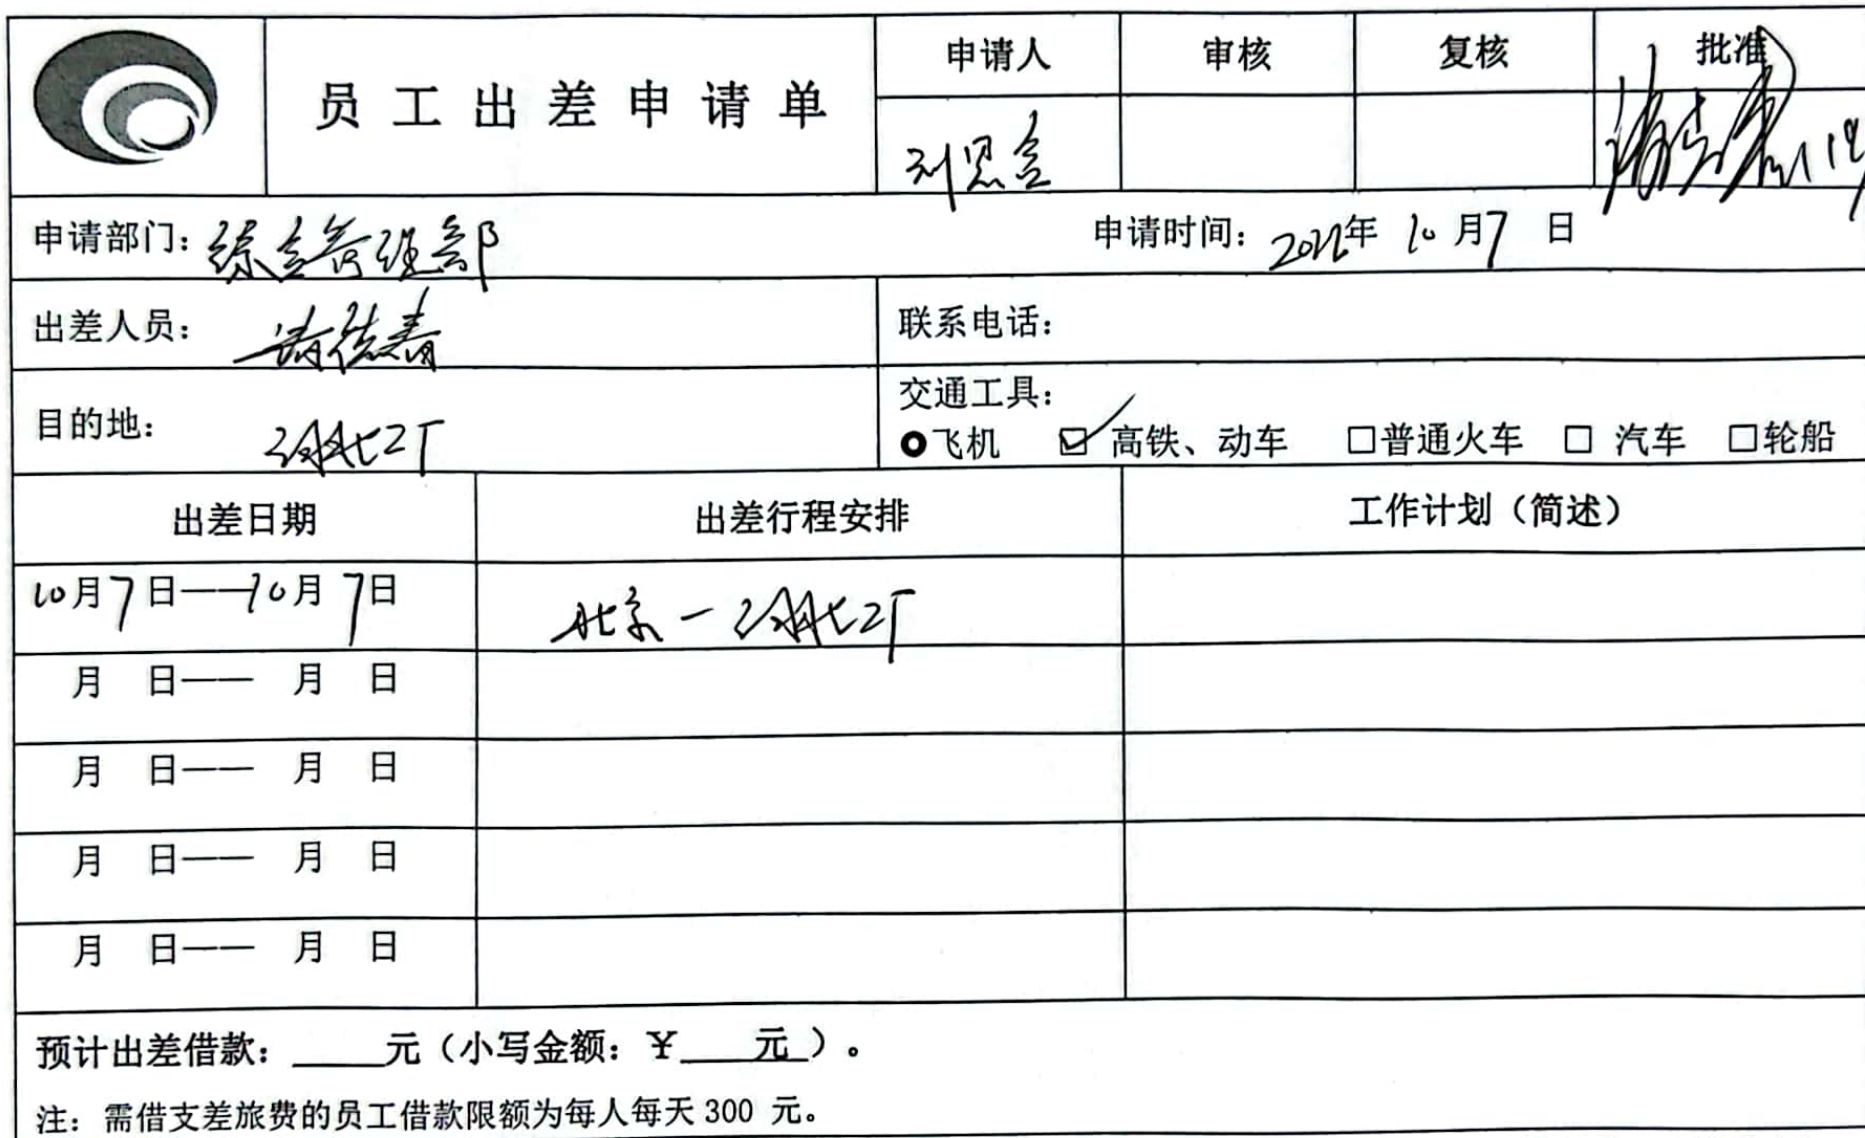 员工出差申请单
申请人 审核 复核 批准
刘思
申请部门：综合管理部 申请时间：2022年 10月7 日
出差人员： 联系电话：
目的地： 湖北工厂 交通工具：
飞机 ☑高铁、动车 □普通火车 □ 汽车 □轮船
出差日期 出差行程安排 工作计划（简述）
10月7日——10月7日 北京－湖北工厂
月 日—— 月 日
月 日—— 月 日
月 日—— 月 日
月 日—— 月 日
预计出差借款：____元（小写金额：￥____元）。
注：需借支差旅费的员工借款限额为每人每天300 元。